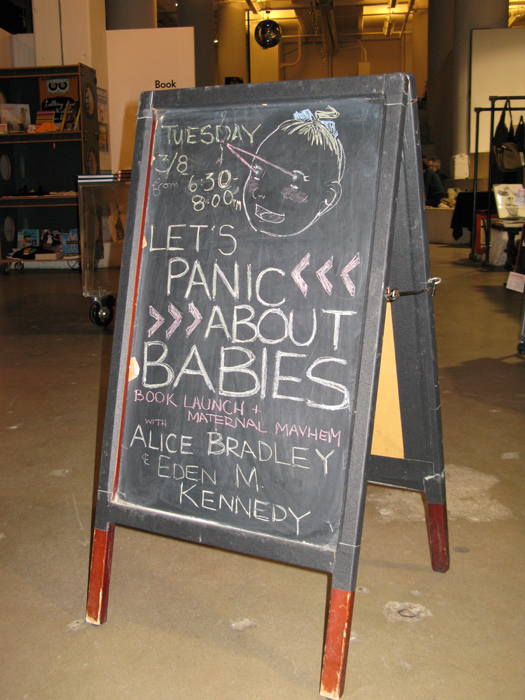 Book
TUESDAY
3/8
from 6:30-
8:00pm
LET'S
PANIC <<<
>>> ABOUT
BABIES
BOOK LAUNCH +
MATERNAL MAYHEM
WITH
ALICE BRADLEY
& EDEN M.
KENNEDY